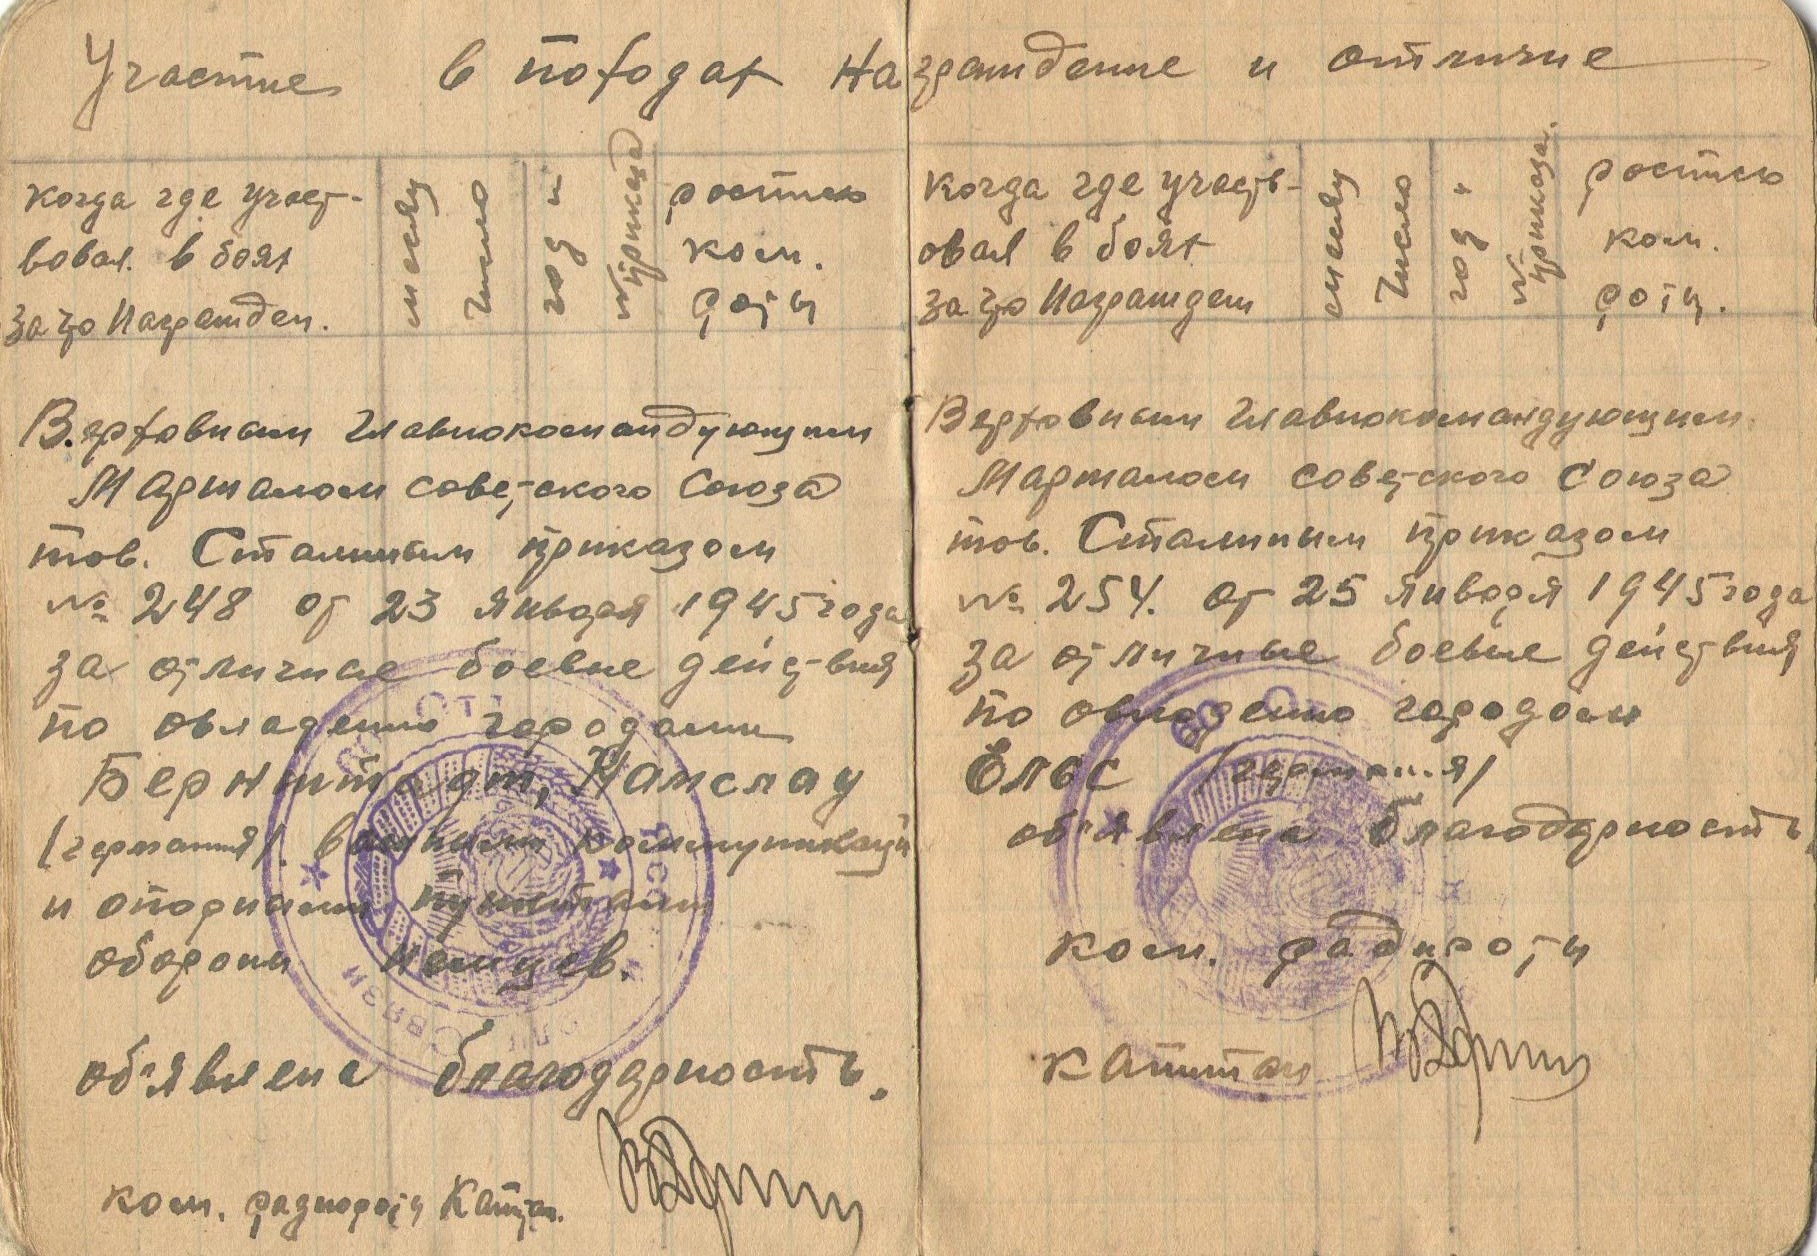 Участие в походах награждение и отличие
когда где участ-
вовал в боях
за что награжден.
месяц
число
год и
№ приказа
роспись
ком.
роты
Верховным главнокомандующим
Маршалом советского Союза
тов. Сталиным приказом
№ 248 от 23 января 1945 года
за отличные боевые действия
по овладению городами
Бернштадт, Намслау
/германия/. важным коммуникаций
и опорными пунктами
обороны немцев.
об'явлена благодарность.
ком. радиороты Капитан.
Связи
когда где участв-
овал в боях
за что награжден
месяц
число
год и
№ приказа.
роспись
ком.
роты.
Верховным главнокомандующим
Маршалом советского Союза
тов. Сталиным приказом
№ 254. от 25 января 1945 года
за отличные боевые действия
по овладению городом
Ельс /германия/
об'явлена благодарность,
ком. радиороты
капитан